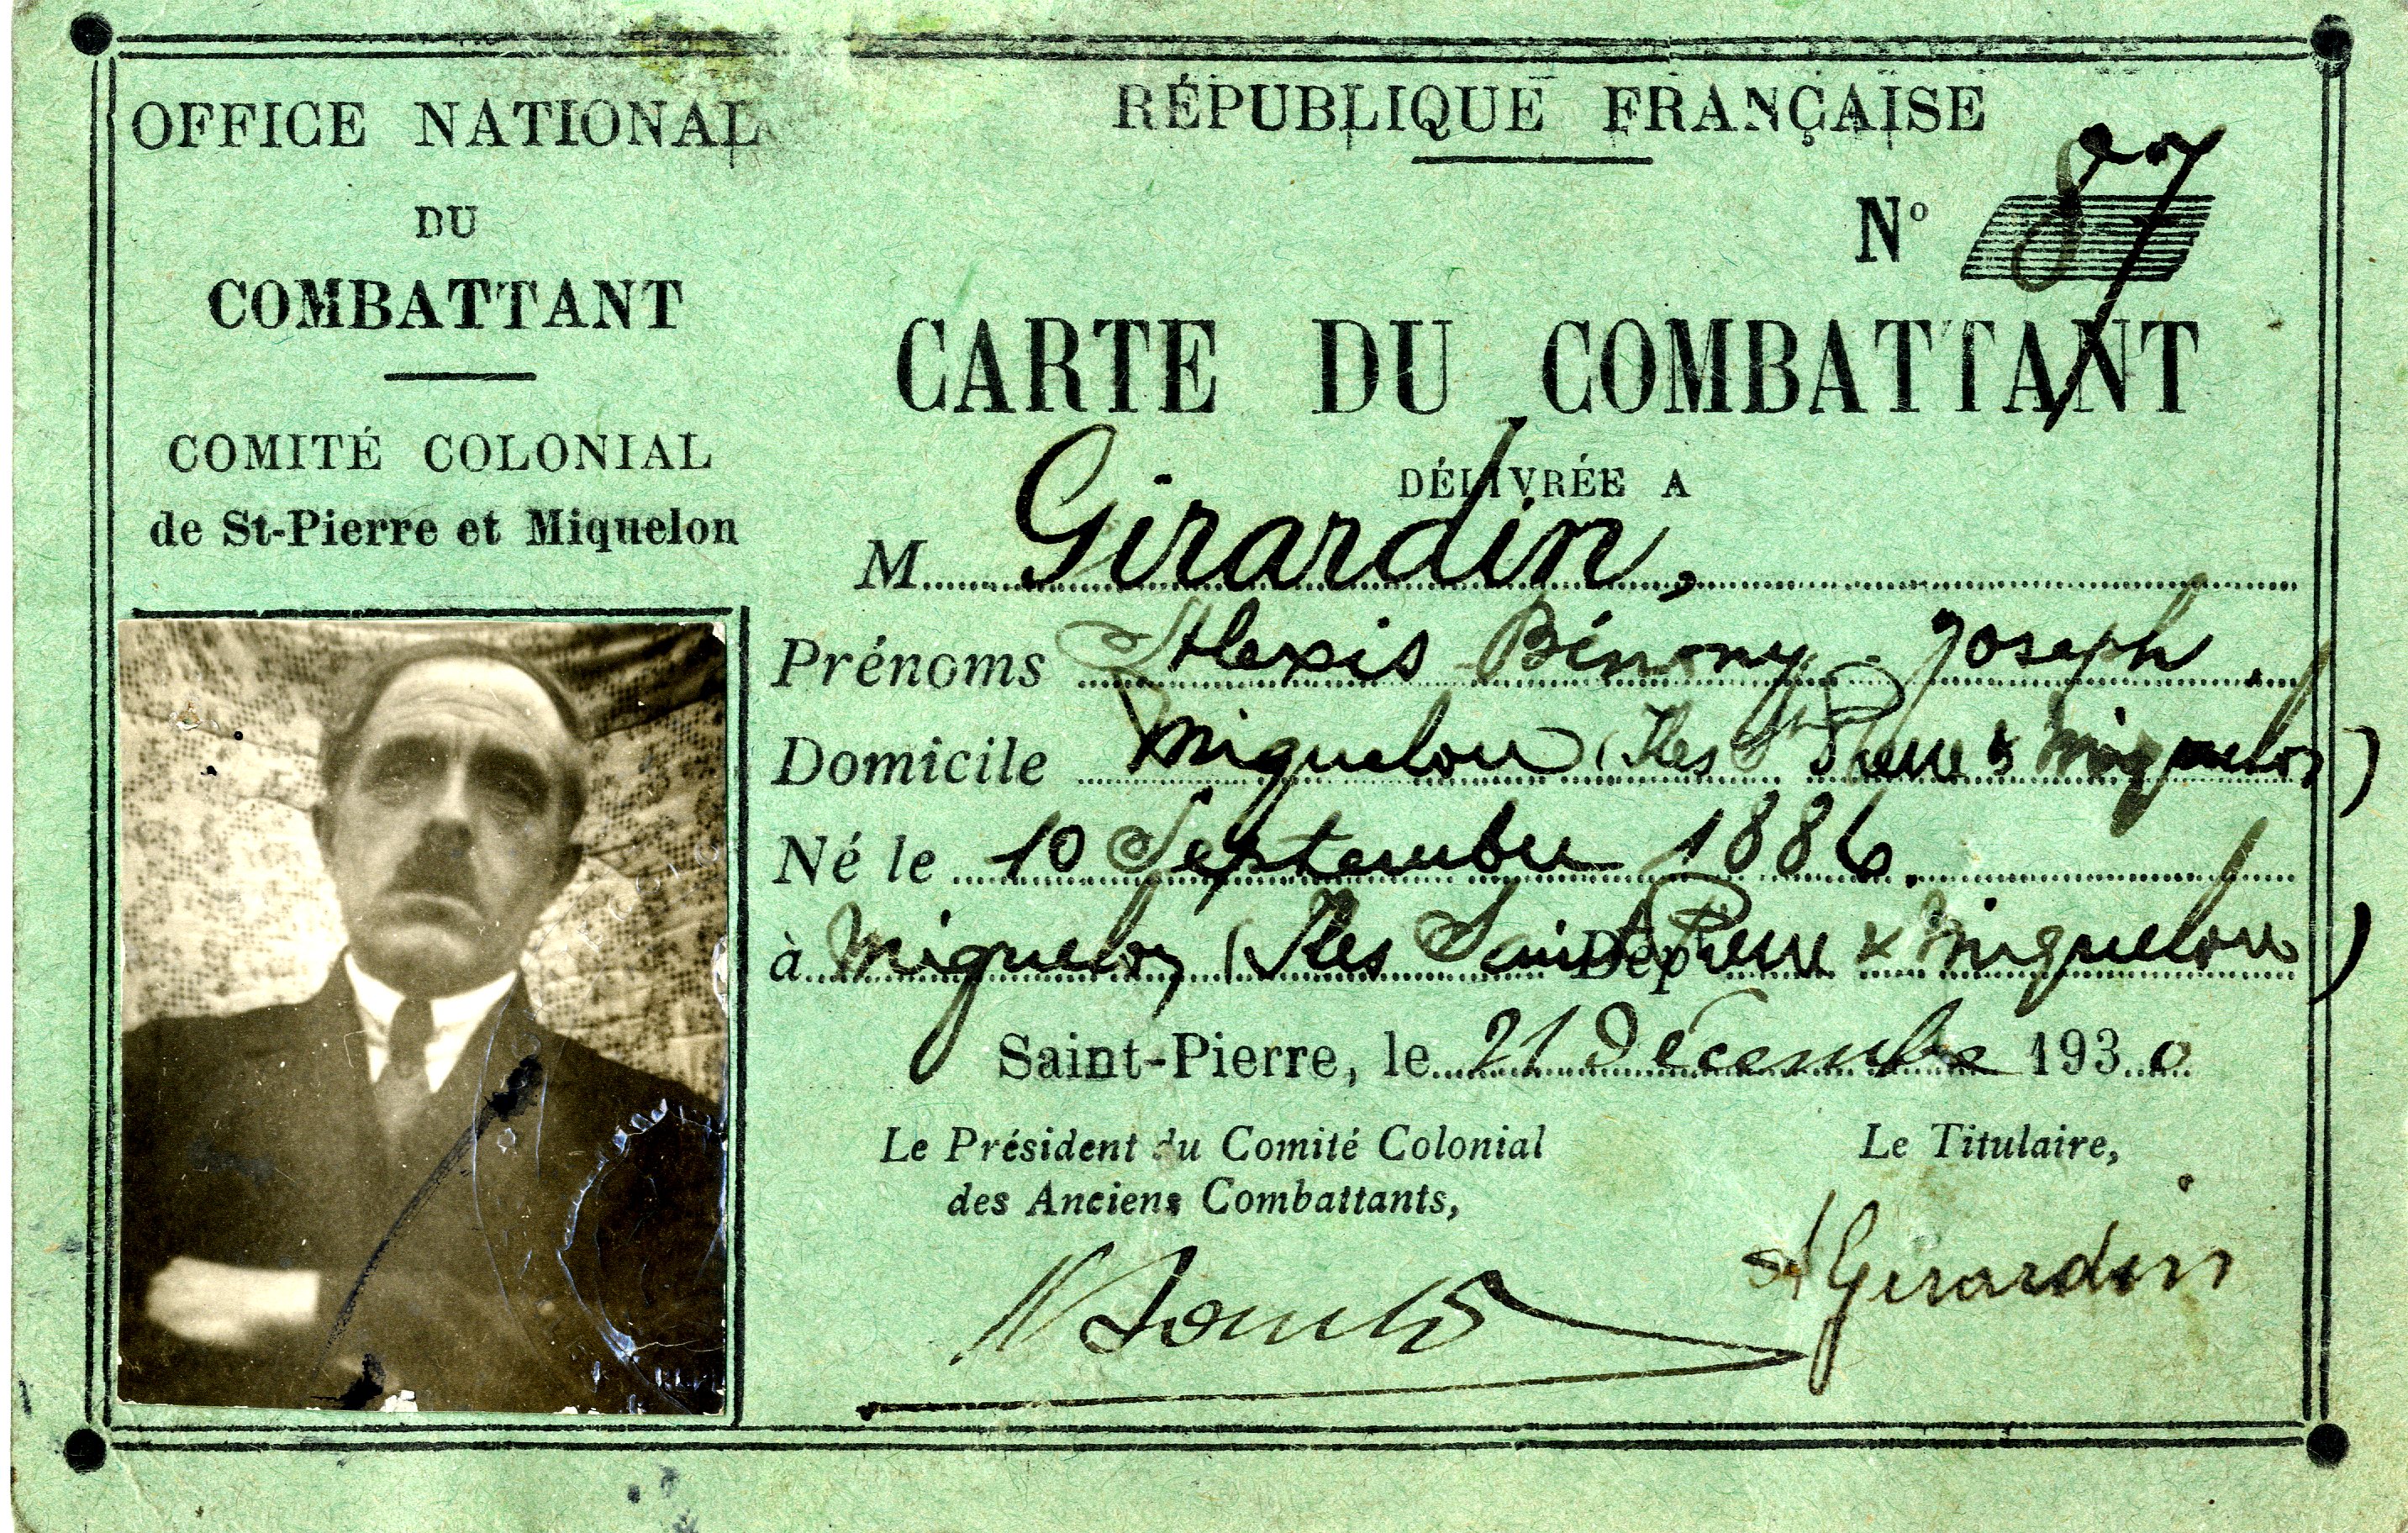 OFFICE NATIONAL
DU
COMBATTANT
COMITÉ COLONIAL
de St-Pierre et Miquelon
RÉPUBLIQUE FRANÇAISE
Nº 87
CARTE DU COMBATTANT
DÉLIVRÉE A
M. Girardin,
Prénoms Alexis Bénony Joseph.
Domicile Miquelon (Iles St Pierre & Miquelon)
Né le 10 Septembre 1886.
à Miquelon (Iles Saint Pierre & Miquelon)
Dépt
Saint-Pierre, le 21 Décembre 1930
Le Président du Comité Colonial
des Anciens Combattants,
Le Titulaire,
Girardin